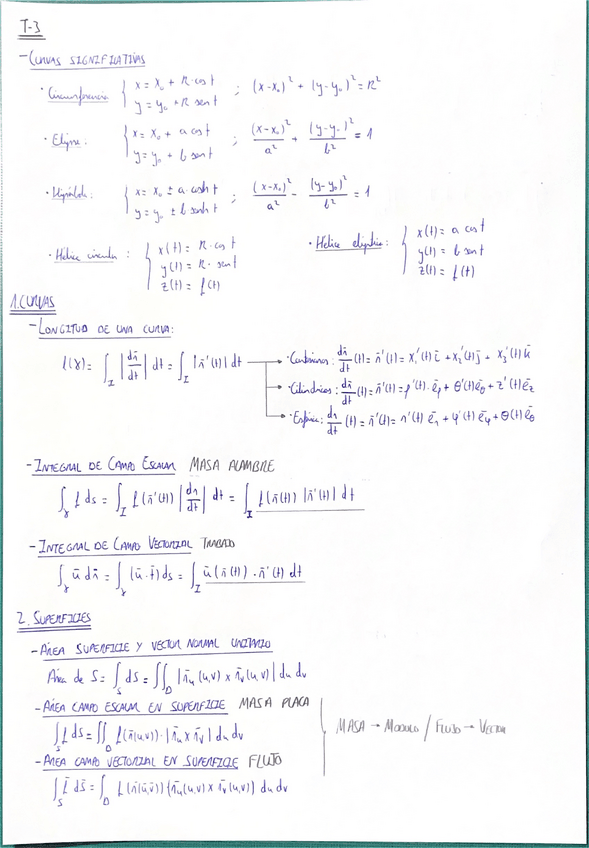 T-3
- CURVAS SIGNIFICATIVAS
· Circunferencia { x = x₀ + R·cos t ; (x-x₀)² + (y-y₀)² = R²
y = y₀ + R sen t
· Elipse: { x = x₀ + a cos t ; (x-x₀)²/a² + (y-y₀)²/b² = 1
y = y₀ + b sen t
· Hipérbola: { x = x₀ ± a·cosh t ; (x-x₀)²/a² - (y-y₀)²/b² = 1
y = y₀ ± b senh t
· Hélice circular: { x(t) = R·cos t
y(t) = R·sen t
z(t) = f(t)
· Hélice elíptica: { x(t) = a cos t
y(t) = b sen t
z(t) = f(t)
1. CURVAS
- LONGITUD DE UNA CURVA:
l(γ) = ∫_I |dr̄/dt| dt = ∫_I |r̄'(t)| dt → · Cartesianas: dr̄/dt (t) = r̄'(t) = x₁'(t) ī + x₂'(t) j̄ + x₃'(t) k̄
· Cilíndricas: dr̄/dt (t) = r̄'(t) = ρ'(t)·ēρ + θ'(t)ēθ + z'(t) ēz
dr̄/dt (t) = r̄'(t) = r'(t) ēr + φ'(t) ēφ + θ(t) ēθ
- INTEGRAL DE CAMPO ESCALAR MASA ALAMBRE
∫_γ f ds = ∫_I f(r̄'(t)) |dr/dt| dt = ∫_I f(r̄(t)) |r̄'(t)| dt
- INTEGRAL DE CAMPO VECTORIAL TRABAJO
∫_γ ū dr̄ = ∫_γ (ū·t̄) ds = ∫_I ū(r̄(t))·r̄'(t) dt
2. SUPERFICIES
- ÁREA SUPERFICIE Y VECTOR NORMAL UNITARIO
Área de S = ∫_S dS = ∬_D |r̄u(u,v) x r̄v(u,v)| du dv
- ÁREA CAMPO ESCALAR EN SUPERFICIE MASA PLACA
∫_S f ds = ∬_D f(r̄(u,v))·|r̄u x r̄v| du dv
- AREA CAMPO VECTORIAL EN SUPERFICIE FLUJO
∫_S f̄ ds̄ = ∫_D f(r̄(ū,v̄)) {r̄u(u,v) x r̄v(u,v)} du dv
MASA → MODULO / FLUJO → VECTOR